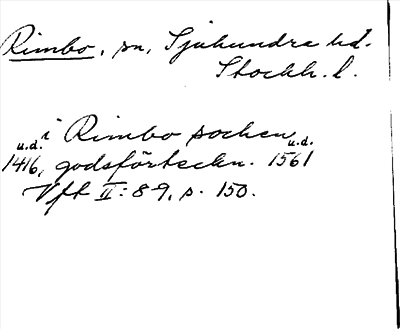 Rimbo, sn, Sjuhundra hd.
Stockh. l.
i Rimbo socken
u.d. 1416, godsförteckn. u.d. 1561
Vft II: 8-9, s. 150.